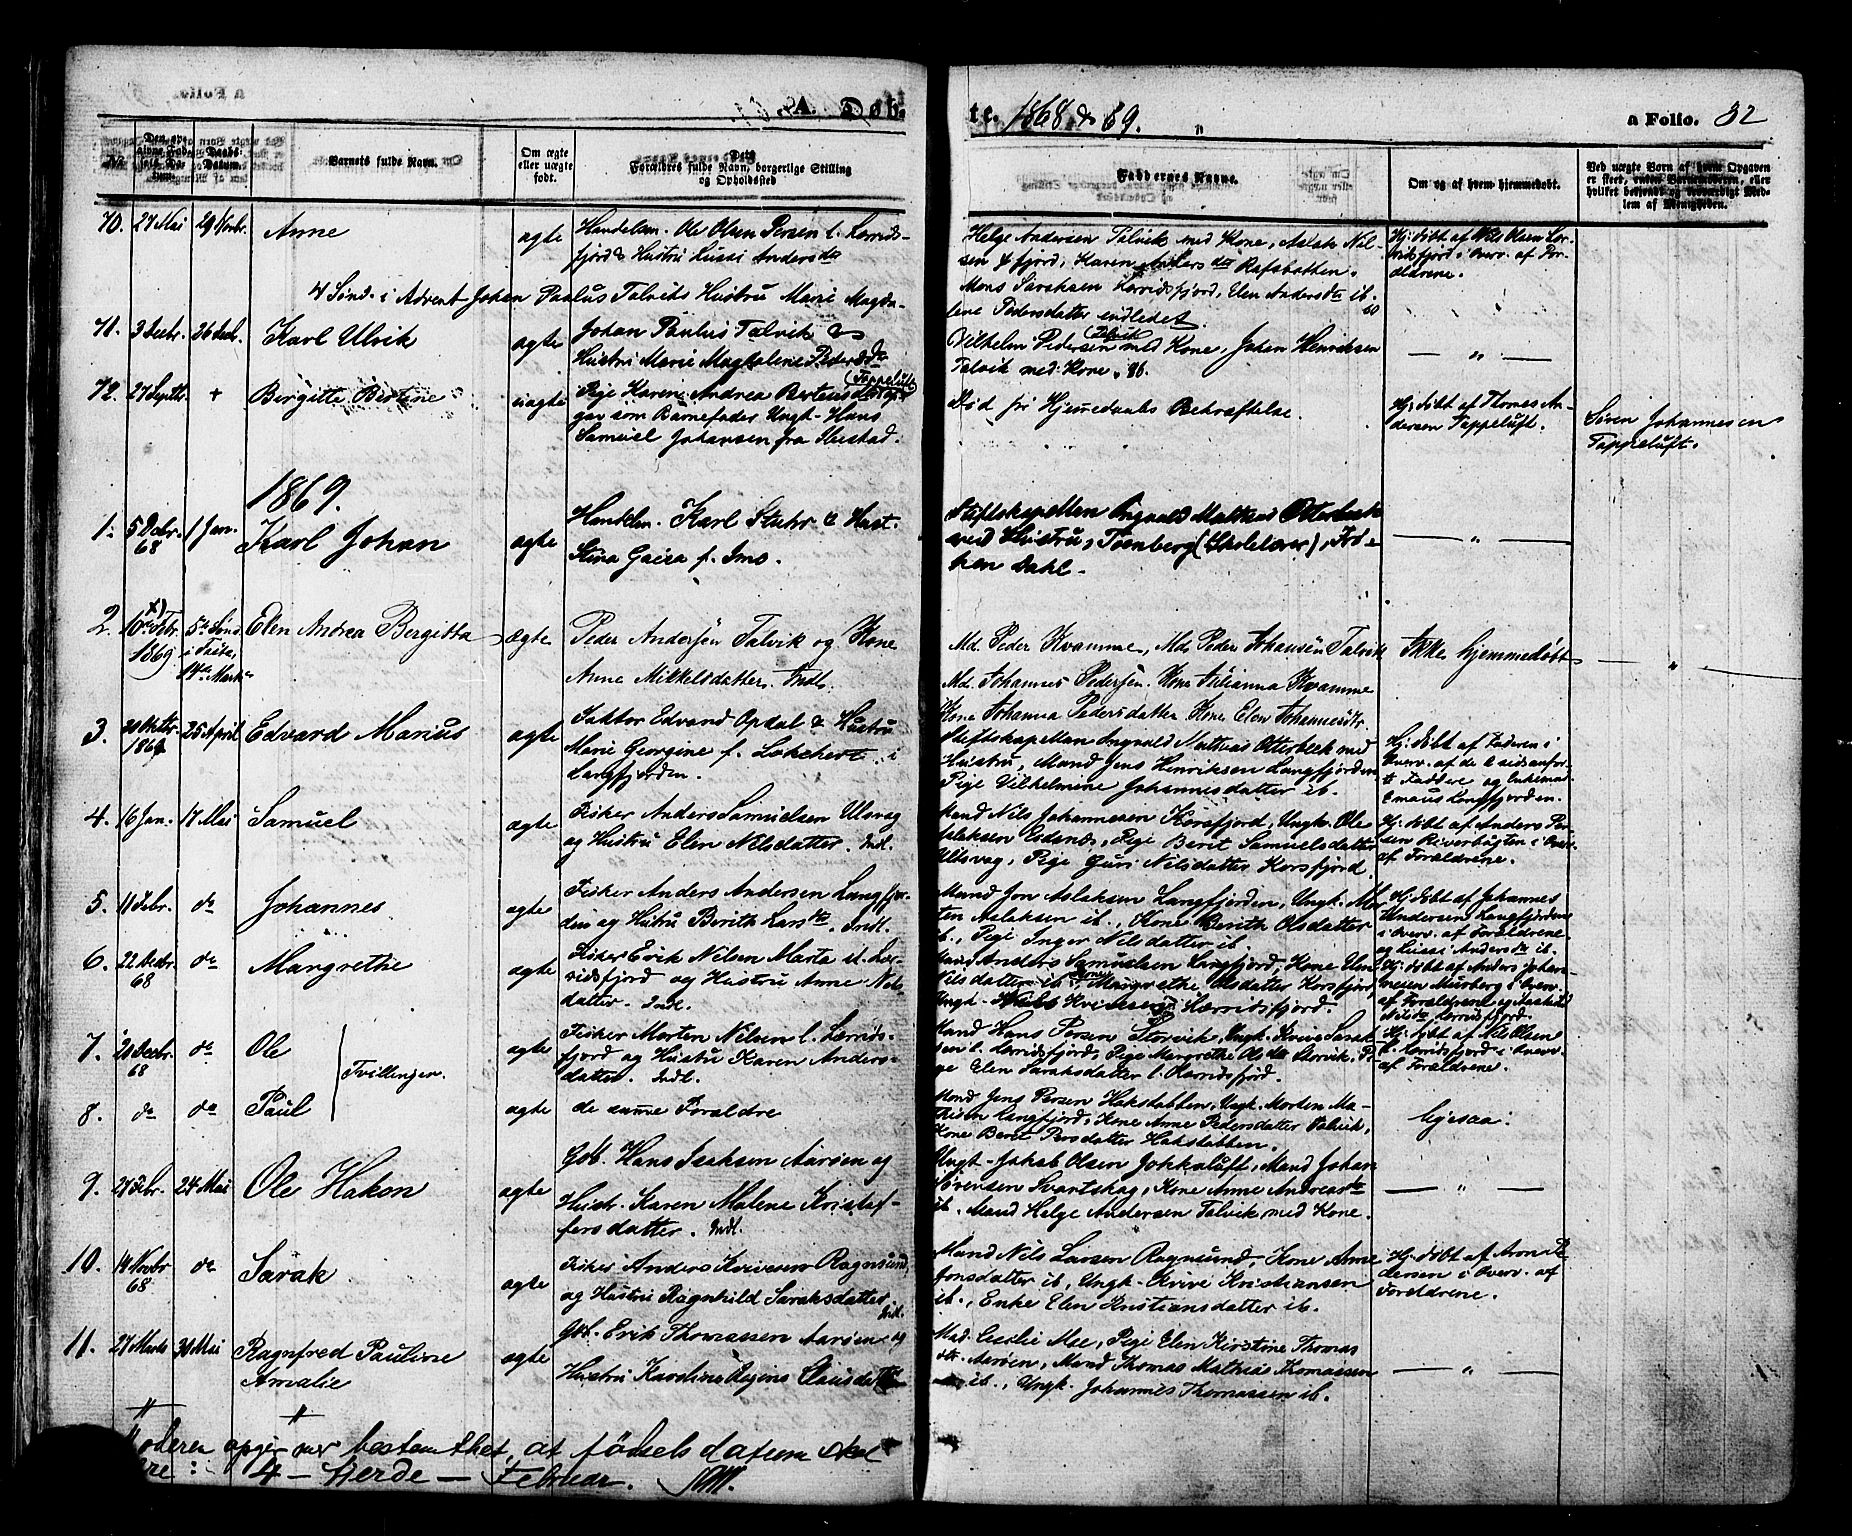 A. Døb-
te. 1868 & 69.
a Folio. 32
No.
Barnets fulde Navn.
Om ægte eller uægte født.
Forældres fulde Navn, borgerlige Stilling og Opholdssted
Faddernes Navne.
Om og af hvem hjemmedøbt.
Ved uægte Børn af hvem Opgaven er skeet, enten Barnemoderen, eller hvilket betroende og troværdigt Medlem af Menigheden.
70. 27 Mai 29 Novbr. Anne
ægte
Handelsm. Ole Olsen Persen l. Lerrids-
fjord & Hustru Lussi Andersdtr
Helge Andersen Talvik med Kone, Aslak Nil-
sen l. fjord, Karen Andersdtr Rafsbotten,
Mons Saraksen Lerridsfjord, Elen Andersdtr ib.
Hj: døbt af Nils Olsen Ler-
ridsfjord i Overv. af For-
ældrene.
4 Sønd. i Advent Johan Paulus Talviks Hustru Marie Magda-
lene Pedersdatter indledet.
71. 3 Decbr. 26 Decb. Karl Ulrik
ægte
Johan Paulus Talvik &
Hustru Marie Magdalene Pedersdtr
Vilhelm Pedersen Talvik med Kone, Johan Henriksen
Talvik med Kone,
— „ —
72. 27 Septb. + Bergitte Bertine
uægte
Pige Karen Andrea Berteusdtr (Tappeluft) op-
gav som Barnefader Ungk. Hans
Samuel Johansen fra
Død før Hjemmedaabs Bekræftelse.
Hj: døbt af Thomas An-
dersen Tappeluft.
Søren Johannesen
Tappeluft.
1869.
1. 5 Decbr. 68 1 Jan. Karl Johan
ægte
Handelsm. Karl Stuhr & Hust.
Stina Gaisa f. Imo.
Stiftskapellan Ingvald Mathias Otterbeck
med Hustru, Tornberg (Skolelærer), Frø-
ken Dahl.
— „ —
2. 10de Febr. x) 1869 5te Sønd. i Faste, 14de Marts Elen Andrea Bergitta
ægte
Peder Andersen Talvik og Kone
Anne Mikkelsdatter. Indl.
Md. Peder Kvamme, Md. Peder Johansen Talvik
Md. Johannes Pedersen. Kone Julianna Kvamme
Kone Johanna Pedersdatter Kone Elen Johannesdtr.
Ikke hjemmedøbt
— „ —
3. 20 Oktbr. 1868 25 April Edvard Marius
ægte
Faktor Edvard Opdal & Hustru
Marie Georgine f. Lokehert i
Langfjorden.
Stiftskapellan Ingvald Mathias Otterbeck med
Hustru, Mand Jens Henriksen Langfjorden,
Pige Vilhelmine Johannesdatter ib.
Hj: døbt af Faderen i
Overv. af de 2 sidsanfør-
te Faddere og Enkemd.
Emaus Langfjorden.
4. 16 Jan. 17 Mai Samuel
ægte
Fisker Anders Samuelsen Ulsvag
og Hustru Elen Nilsdatter. Indl.
Mand Nils Johannesen Korsfjord, Ungk. Ole
Isaksen Eidsnæs, Pige Berit Samuelsdatter
Ulsvag, Pige Guri Nilsdatter Korsfjord.
Hj: døbt af Anders Per-
sen Riverbugten i Overv.
af Forældrene.
5. 11 Febr. do Johannes
ægte
Fisker Anders Andersen Langfjor-
den og Hustru Berith Larsdtr. Indl.
Mand Jon Aslaksen Langfjorden, Ungk. Mor-
ten Aslaksen ib., Kone Berith Olsdatter
ib., Pige Inger Nilsdatter ib.
Hj: døbt af Johannes
Andersen Langfjorden
i Overv. af Forældrene
og Lussi Andersdtr ib.
6. 22 Decbr. 68 do Margrethe
ægte
Fisker Erik Nilsen Marta il. Ler-
ridsfjord og Hustru Anne Nils-
datter. Indl.
Mand Anders Samuelsen Langfjord, Kone Elen
Nilsdatter ib., Kone Margrethe Olsdatter Korsfjord,
Ungk. Lerridsfjord.
Hj: døbt af Anders Johan-
nesen Murberg i Overv.
af Forældrene og
Nilsdtr Lerridsfjord.
7. 20 Decbr. 68 do Ole
Tvillinger.
ægte
Fisker Morten Nilsen l. Lerrids-
fjord og Hustru Karen Anders-
datter. Indl.
Mand Hans Persen Storvik, Ungk. Kvive Sarak-
sen l. Lerridsfjord, Pige Margrethe Olsdtr Storvik, Pi-
ge Elen Saraksdatter l. Lerridsfjord.
Hj: døbt af Nils Olsen
l. Lerridsfjord i Overv.
af Forældrene.
8. do do Paul
ægte
de samme Forældre
Mand Jens Persen Hakstabben, Ungk. Morten Ma-
thisen Langfjord, Kone Anne Pedersdatter Talvik,
Kone Berit Persdatter Hakstabben.
ligesaa:
9. 27 Febr. 24 Mai Ole Hakon
ægte
Gbr. Hans Isaksen Aarøen og
Hustr. Karen Malene Kristof-
fersdatter. Indl.
Ungk. Jakob Olsen Jokkaluft, Mand Johan
Sørensen Svartskag, Kone Anne Andreasdtr
ib. Mand Helge Andersen Talvik med Kone.
— „ —
10. 14 Novbr. 68 do Sarak
ægte
Fisker Anders Kvivesen Ragnsund,
og Hustru Ragnhild Saraksdatter. Indl.
Mand Nils Larsen Ragnsund, Kone Anne
Jonsdatter ib., Ungk. Kvive Kristiansen
ib., Enke Elen Kristiansdatter ib.
Hj: døbt af Aron Pe-
dersen i Overv. af
Forældrene.
11. 27 Marts 30 Mai Ragnfred Pauline
Amalie
ægte
Gbr. Erik Thomassen Aarøen og
Hustru Karoline Regine Clausdatter
Mad. Cecilie Moe, Pige Elen Kirstine Thomas
dtr. Aarøen, Mand Thomas Mathias Thomassen
ib., Ungk. Johannes Thomassen ib.
— „ —
Moderen opgir mer bestemthet, at fødselsdatum skal
være: 4 – fjerde – Februar.